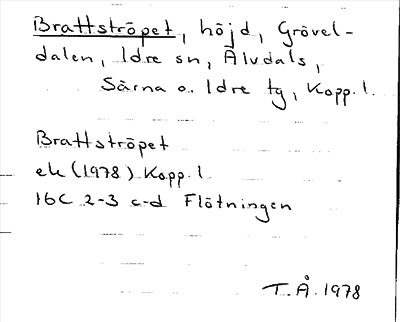 Brattströpet, höjd, Grövel-
dalen, Idre sn, Älvdals,
Särna o. Idre tg, Kopp.l.
Brattströpet
ek (1978) Kopp.l.
16C 2-3 c-d Flötningen
T.Å. 1978